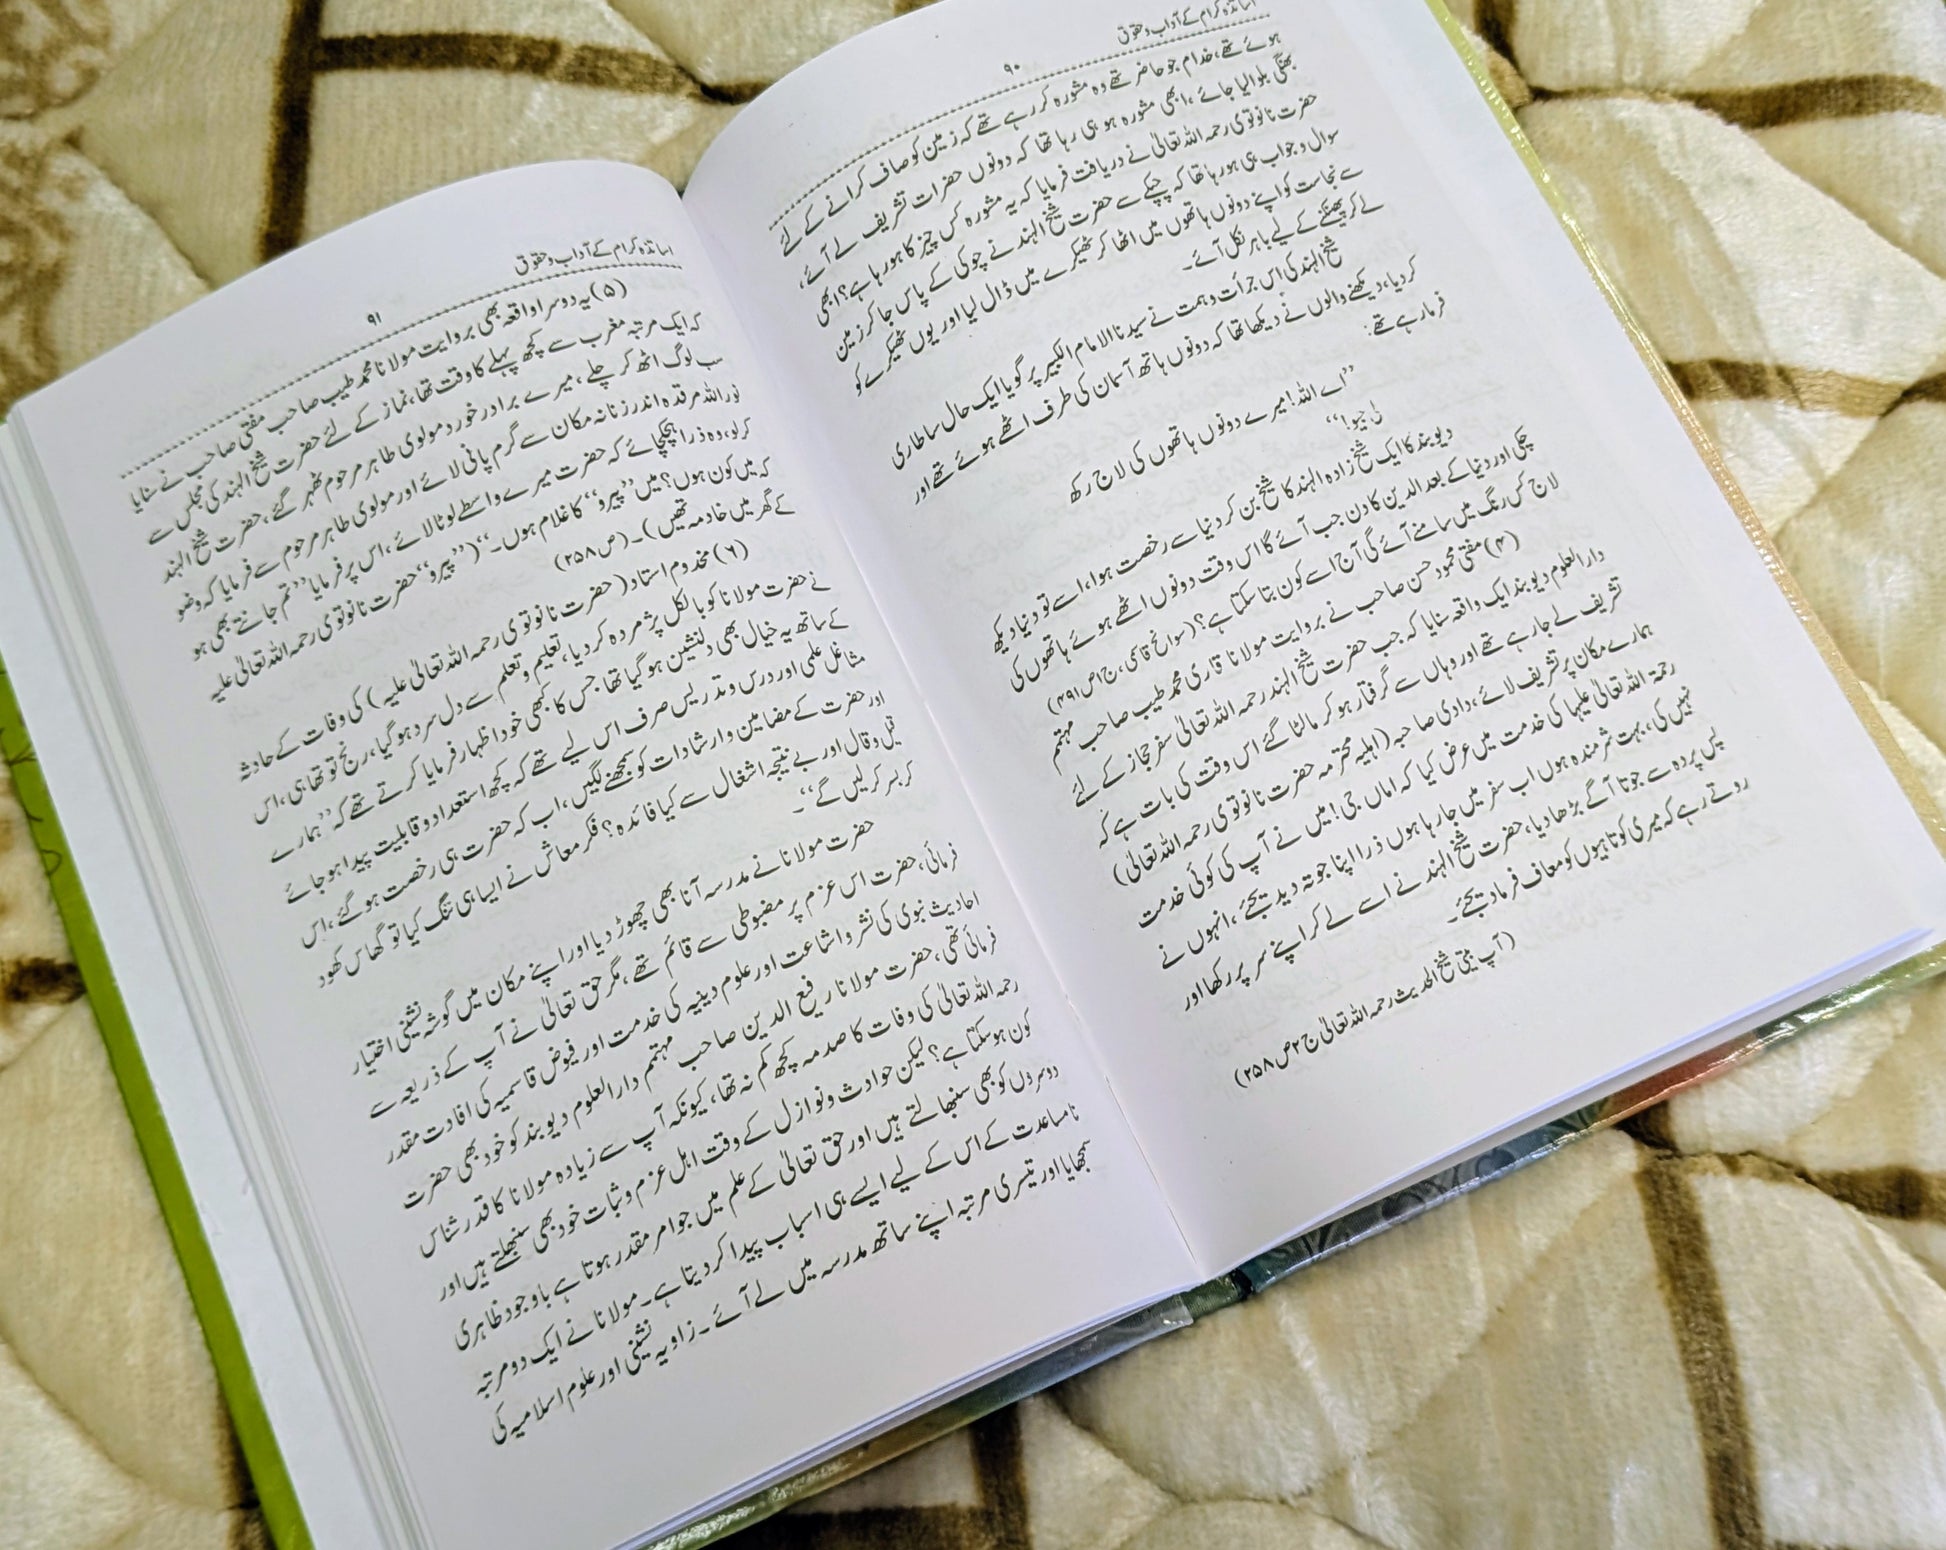 اساتذہ کرام کے آداب و حقوق
۹۰
ہوئے تھے، خدام جو حاضر تھے وہ مشورہ کر رہے تھے کہ زمین کو صاف کرانے کے لئے
بھنگی بلوالیا جائے، ابھی مشورہ ہو ہی رہا تھا کہ دونوں حضرات تشریف لے آئے،
حضرت نانوتوی رحمہ اللہ تعالیٰ نے دریافت فرمایا کہ یہ مشورہ کس چیز کا ہو رہا ہے؟ ابھی
سوال وجواب ہی ہو رہا تھا کہ چپکے سے حضرت شیخ الہند نے چوکی کے پاس جا کر زمین
سے نجاست کو اپنے دونوں ہاتھوں میں اٹھا کر ٹھیکرے میں ڈال لیا اور یوں ٹھیکرے کو
لے کر پھینکنے کے لیے باہر نکل آئے۔
شیخ الہند کی اس جرأت وہمت نے سیدنا الامام الکبیر پر گویا ایک حال سا طاری
کر دیا، دیکھنے والوں نے دیکھا تھا کہ دونوں ہاتھ آسمان کی طرف اٹھے ہوئے تھے اور
فرما رہے تھے:
”اے اللہ! میرے دونوں ہاتھوں کی لاج رکھ
لی جیو!“
دیوبند کا ایک شیخ زادہ الہند کا شیخ بن کر دنیا سے رخصت ہوا، اسے تو دنیا دیکھ
چکی اور دنیا کے بعد الدین کا دن جب آئے گا اس وقت دونوں اٹھے ہوئے ہاتھوں کی
لاج کس رنگ میں سامنے آئے گی آج اسے کون بتا سکتا ہے؟ (سوانح قاسمی، ج۱ص۴۹۱)
(۴) مفتی محمود حسن صاحب نے بروایت مولانا قاری محمد طیب صاحب مہتمم
دارالعلوم دیوبند ایک واقعہ سنایا کہ جب حضرت شیخ الہند رحمہ اللہ تعالیٰ سفر حجاز کے لئے
تشریف لے جا رہے تھے اور وہاں سے گرفتار ہو کر مالٹا گئے اس وقت کی بات ہے کہ
ہمارے مکان پر تشریف لائے، دادی صاحبہ (اہلیہ محترمہ حضرت نانوتوی رحمہ اللہ تعالیٰ)
رحمۃ اللہ تعالیٰ علیہا کی خدمت میں عرض کیا کہ اماں جی! میں نے آپ کی کوئی خدمت
نہیں کی، بہت شرمندہ ہوں اب سفر میں جا رہا ہوں ذرا اپنا جوتہ دیدیجئے، انہوں نے
پس پردہ سے جوتا آگے بڑھا دیا، حضرت شیخ الہند نے اسے لے کر اپنے سر پر رکھا اور
روتے رہے کہ میری کوتاہیوں کو معاف فرما دیجئے۔
(آپ بیتی شیخ الحدیث رحمہ اللہ تعالیٰ ج۲ص۲۵۸)
اساتذہ کرام کے آداب و حقوق
۹۱
(۵) یہ دوسرا واقعہ بھی بروایت مولانا محمد طیب صاحب مفتی صاحب نے سنایا
کہ ایک مرتبہ مغرب سے کچھ پہلے کا وقت تھا، نماز کے لئے حضرت شیخ الہند کی مجلس سے
سب لوگ اٹھ کر چلے، میرے برادر خورد مولوی طاہر مرحوم ٹھہر گئے، حضرت شیخ الہند
نور اللہ مرقدہ اندر زنانہ مکان سے گرم پانی لائے اور مولوی طاہر مرحوم سے فرمایا کہ وضو
کرلو، وہ ذرا ہچکچائے کہ حضرت میرے واسطے لوٹا لائے، اس پر فرمایا ”تم جانتے بھی ہو
کہ میں کون ہوں؟ میں ”پیرو“ کا غلام ہوں۔“ (”پیرو“ حضرت نانوتوی رحمہ اللہ تعالیٰ علیہ
کے گھر میں خادمہ تھیں)۔ (ص۲۵۸)
(۶) مخدوم استاد (حضرت نانوتوی رحمہ اللہ تعالیٰ علیہ) کی وفات کے حادثہ
نے حضرت مولانا کو بالکل پژمردہ کر دیا، تعلیم و تعلم سے دل سرد ہو گیا، رنج تو تھا ہی، اس
کے ساتھ یہ خیال بھی دلنشین ہو گیا تھا جس کا کبھی خود اظہار فرمایا کرتے تھے کہ ”ہمارے
مشاغل علمی اور درس و تدریس صرف اس لیے تھے کہ کچھ استعداد و قابلیت پیدا ہو جائے
اور حضرت کے مضامین وارشادات کو سمجھنے لگیں، اب کہ حضرت ہی رخصت ہو گئے، اس
قیل و قال اور بے نتیجہ اشغال سے کیا فائدہ؟ فکر معاش نے ایسا ہی تنگ کیا تو گھاس کھود
کر بسر کر لیں گے“۔
حضرت مولانا نے مدرسہ آنا بھی چھوڑ دیا اور اپنے مکان میں گوشہ نشینی اختیار
فرمائی، حضرت اس عزم پر مضبوطی سے قائم تھے، مگر حق تعالیٰ نے آپ کے ذریعہ سے
احادیث نبوی کی نشر و اشاعت اور علوم دینیہ کی خدمت اور فیوض قاسمیہ کی افادت مقدر
فرمائی تھی، حضرت مولانا رفیع الدین صاحب مہتمم دارالعلوم دیوبند کو خود بھی حضرت
رحمہ اللہ تعالیٰ کی وفات کا صدمہ کچھ کم نہ تھا، کیونکہ آپ سے زیادہ مولانا کا قدر شناس
کون ہو سکتا ہے؟ لیکن حوادث و نوازل کے وقت اہل عزم و ثبات خود بھی سنبھلتے ہیں اور
دوسروں کو بھی سنبھالتے ہیں اور حق تعالیٰ کے علم میں جو امر مقدر ہوتا ہے باوجود ظاہری
نامساعدت کے اس کے لیے ایسے ہی اسباب پیدا کر دیتا ہے۔ مولانا نے ایک دو مرتبہ
سمجھایا اور تیسری مرتبہ اپنے ساتھ مدرسہ میں لے آئے۔ زاویہ نشینی اور علوم اسلامیہ کی